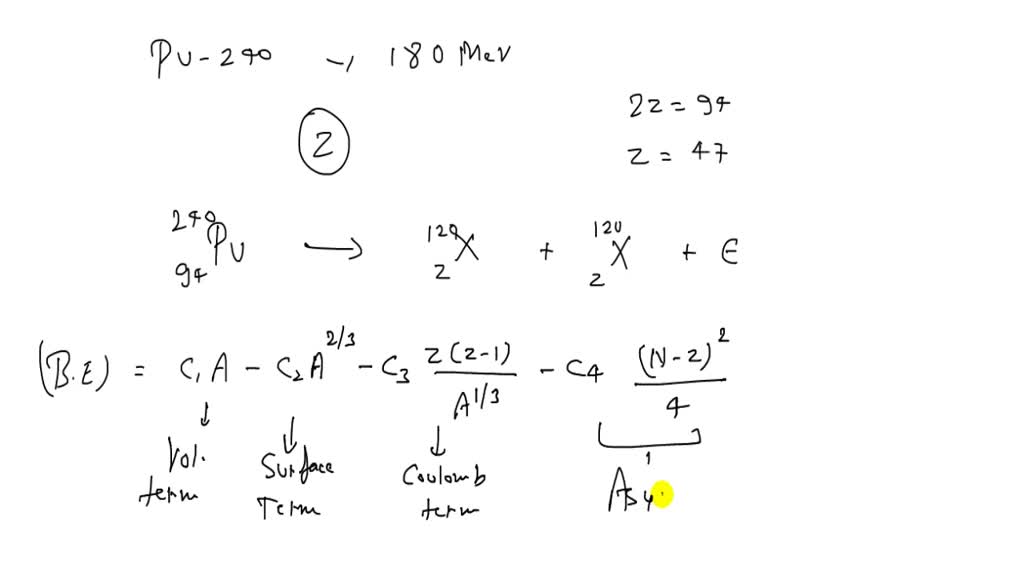 Pu-240 → 180 MeV
2z = 94
z
z = 47
²⁴⁰₉₄Pu → ¹²⁰_zX + ¹²⁰_zX + E
(B.E) = C₁A - C₂A^2/3 - C₃ z(z-1)/A^1/3 - C4 (N-z)²/4
Vol. term
Surface Term
Coulomb term
Asy